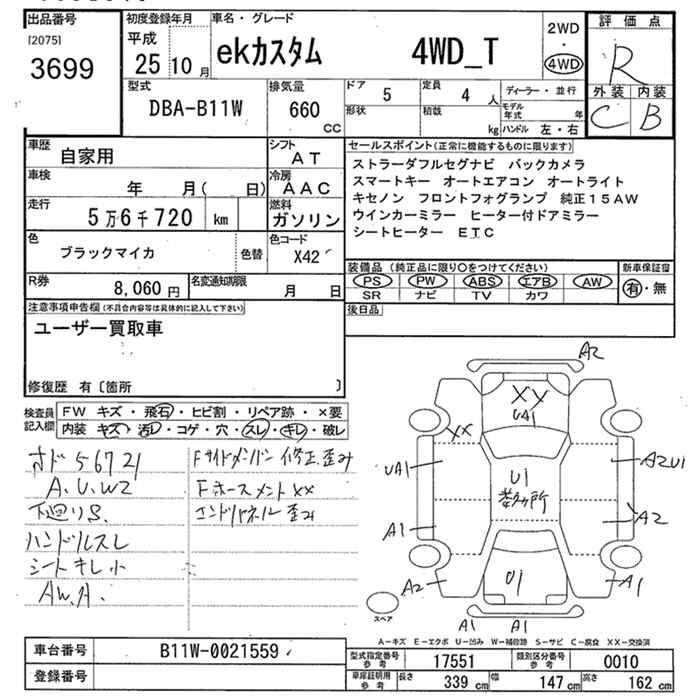 出品番号
[2075]
3699
初度登録年月
平成
25 10 月
車名・グレード
ekカスタム 4WD_T
2WD
・
4WD
評価点
R
外装 内装
C B
型式
DBA-B11W
排気量
660
CC
ドア 5
定員 4 人
形状
積載 kg
ディーラー・並行
モデル年式 年
ハンドル 左・右
車歴
自家用
シフト
AT
車検
年 月( 日)
冷房
AAC
走行
5万6千720 km
燃料
ガソリン
色
ブラックマイカ
色替
色コード
X42
R券
8,060 円
名変通知期限
月 日
セールスポイント(正常に機能するものに限ります)
ストラーダフルセグナビ バックカメラ
スマートキー オートエアコン オートライト
キセノン フロントフォグランプ 純正15AW
ウインカーミラー ヒーター付ドアミラー
シートヒーター ETC
装備品(純正品に限り○をつけてください)
新車保証書
PS PW ABS エアB AW
SR ナビ TV カワ
有・無
後日品
注意事項申告欄(不具合内容等は具体的に記入して下さい)
ユーザー買取車
修復歴 有〔箇所 〕
検査員記入欄
FW キズ・飛石・ヒビ割・リペア跡・×要
内装 キズ・汚レ・コゲ・穴・スレ・キレ・破レ
オド56721
A.U.W2
下廻りS
ハンドルスレ
シートキレ小
AW.A
Fサイドメンバー修正歪み
FホースメントXX
エンドパネル歪み
A2
XX
UA1
XX
UA1
U1
数ヶ所
A2U1
A1
A2
A2
U1
A1
A1 A1
スペア
A―キズ E―エクボ U―凹み W―補修跡 S―サビ C―腐食 XX―交換済
車台番号
B11W-0021559
登録番号
型式指定番号
参考
17551
類別区分番号
参考
0010
車庫証明用
参考
長さ 339 cm
幅 147 cm
高さ 162 cm